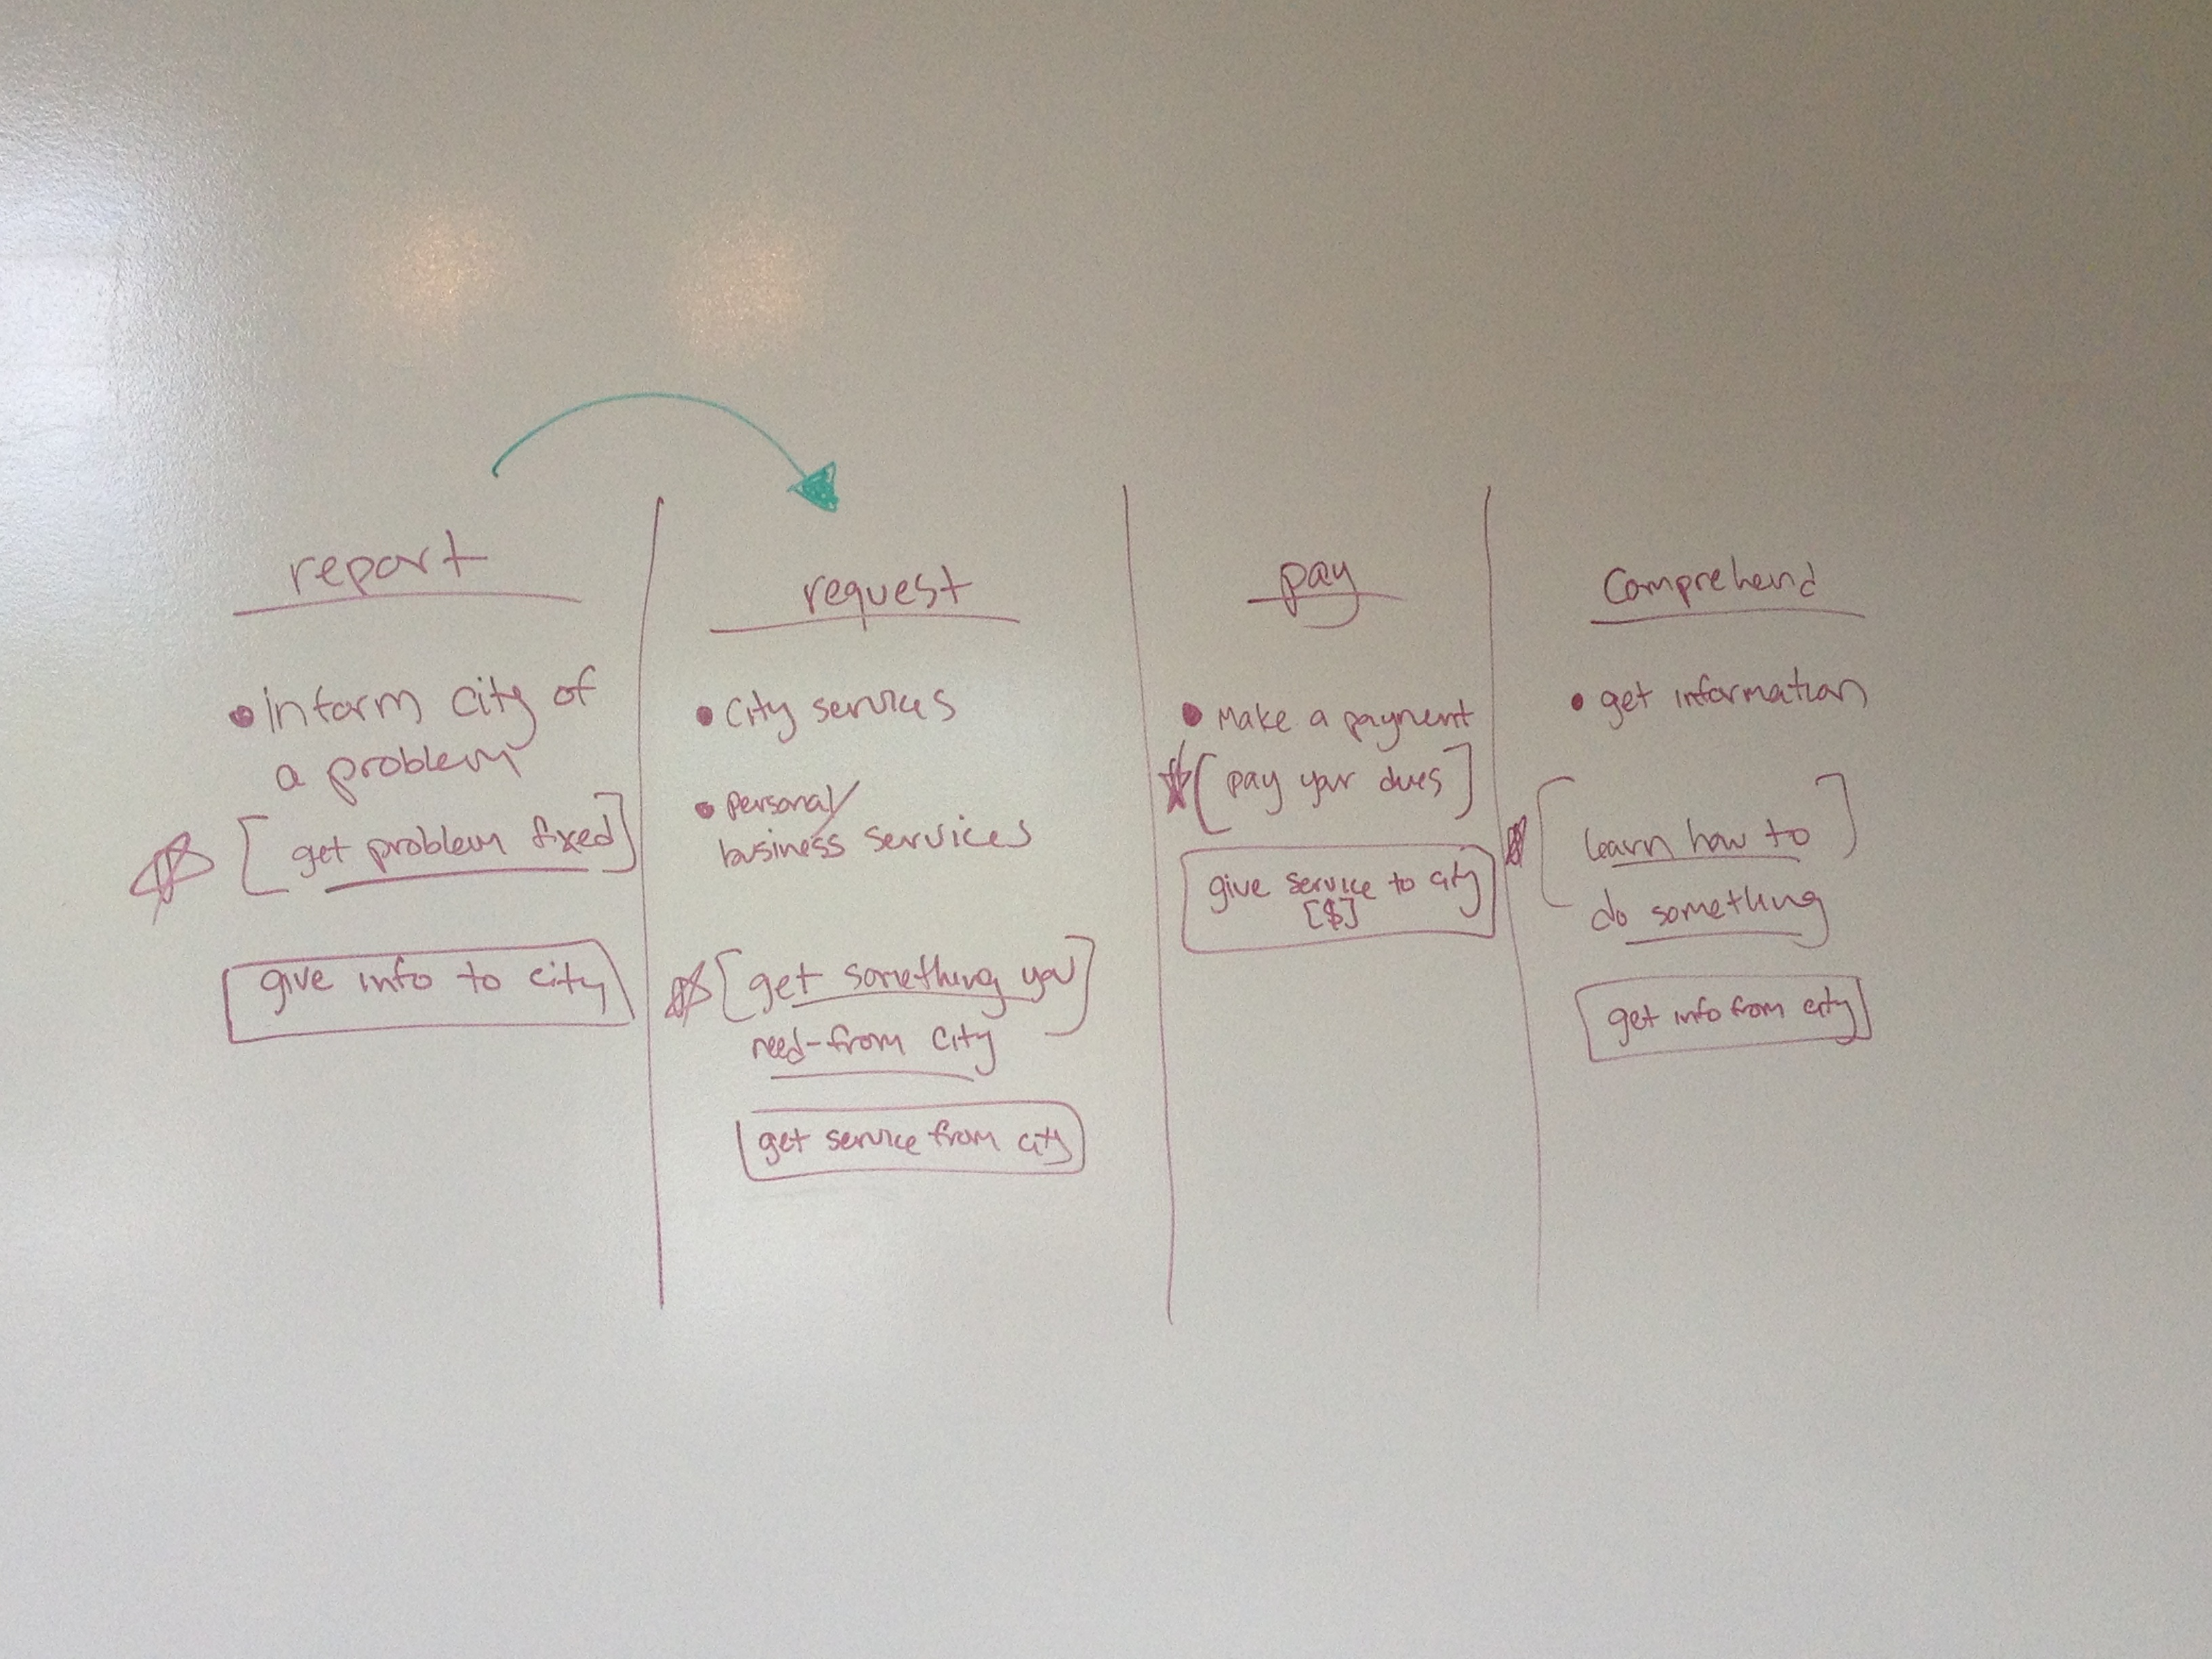 report
• Inform city of
a problem
[get problem fixed]
give info to city
request
• City services
• personal/
business services
[get something you]
need-from city
get service from city
pay
• Make a payment
[pay your dues]
give service to city
[$]
Comprehend
• get information
[learn how to]
do something
get info from city